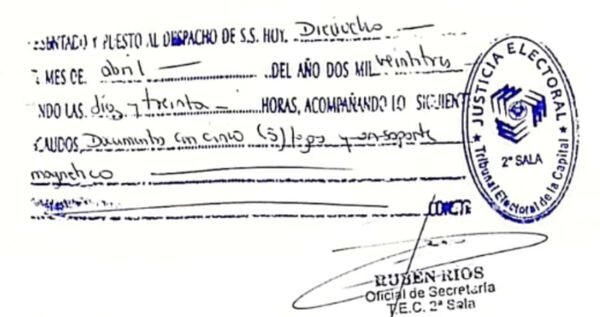 SENTADO Y PUESTO AL DESPACHO DE S.S. HOY, Dieciocho
MES DE, abril DEL AÑO DOS MIL veintitres
NDO LAS diez y treinta HORAS, ACOMPAÑANDO LO SIGUIENT
CAUDOS, Documento con cinco (5) fojas y un soporte
magnetico
JUSTICIA ELECTORAL
2ª SALA
Tribunal Electoral de la Capital
RUBEN RIOS
Oficial de Secretaría
T.E.C. 2ª Sala